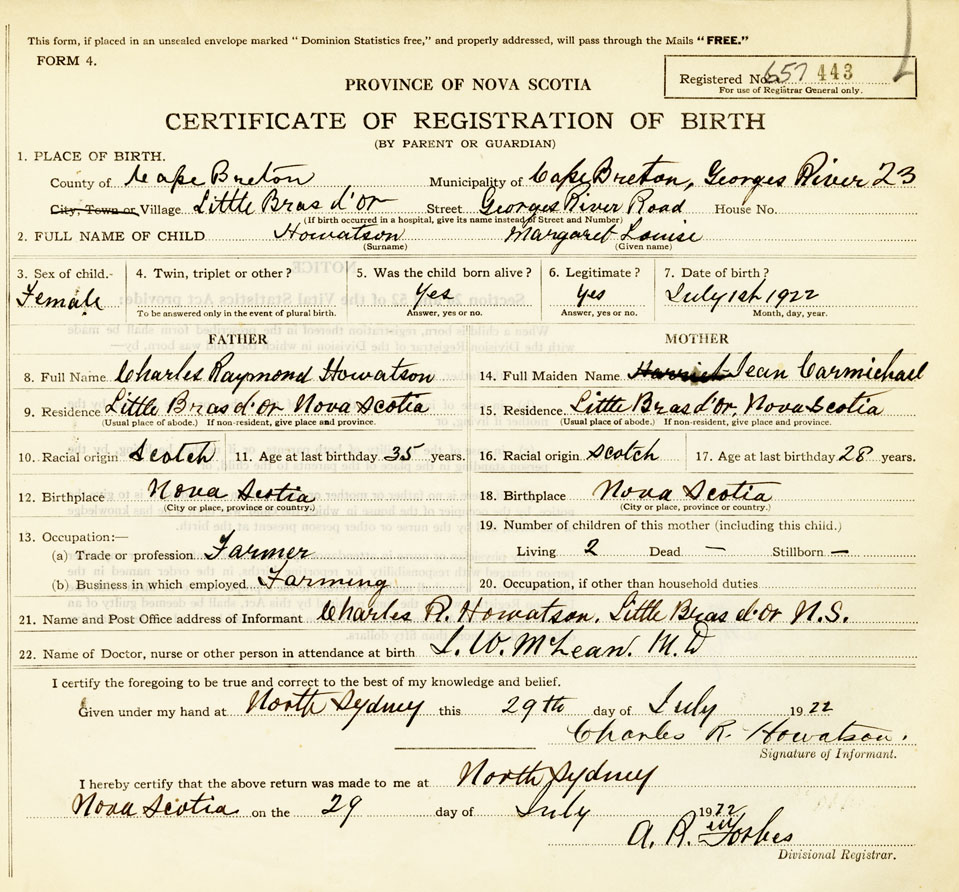 This form, if placed in an unsealed envelope marked "Dominion Statistics free," and properly addressed, will pass through the Mails "FREE."
FORM 4.
Registered No. 657 443
For use of Registrar General only.
PROVINCE OF NOVA SCOTIA
CERTIFICATE OF REGISTRATION OF BIRTH
(BY PARENT OR GUARDIAN)
1. PLACE OF BIRTH.
County of Cape Breton Municipality of Cape Breton, Georges River 23
City, Town or Village Little Bras d'Or Street Georges River Road House No.
(If birth occurred in a hospital, give its name instead of Street and Number)
2. FULL NAME OF CHILD Howatson Margaret Louise
(Surname) (Given name)
3. Sex of child.- 4. Twin, triplet or other? 5. Was the child born alive? 6. Legitimate? 7. Date of birth?
Female Yes Yes July 1st 1922
To be answered only in the event of plural birth. Answer, yes or no. Answer, yes or no. Month, day, year.
FATHER MOTHER
8. Full Name Charles Raymond Howatson 14. Full Maiden Name Harriet Jean Carmichael
9. Residence Little Bras d'Or Nova Scotia 15. Residence Little Bras d'Or, Nova Scotia
(Usual place of abode.) If non-resident, give place and province. (Usual place of abode.) If non-resident, give place and province.
10. Racial origin Scotch 11. Age at last birthday 35 years. 16. Racial origin Scotch 17. Age at last birthday 28 years.
12. Birthplace Nova Scotia 18. Birthplace Nova Scotia
(City or place, province or country.) (City or place, province or country.)
13. Occupation:— 19. Number of children of this mother (including this child.)
(a) Trade or profession Farmer Living 2 Dead — Stillborn —
(b) Business in which employed Farming 20. Occupation, if other than household duties
21. Name and Post Office address of Informant Charles R. Howatson, Little Bras d'Or N.S.
22. Name of Doctor, nurse or other person in attendance at birth L. W. McLean. M.D
I certify the foregoing to be true and correct to the best of my knowledge and belief.
Given under my hand at North Sydney this 29th day of July 1922
Charles R. Howatson.
Signature of Informant.
I hereby certify that the above return was made to me at North Sydney
Nova Scotia on the 29 day of July 1922
A. R. Forbes
Divisional Registrar.